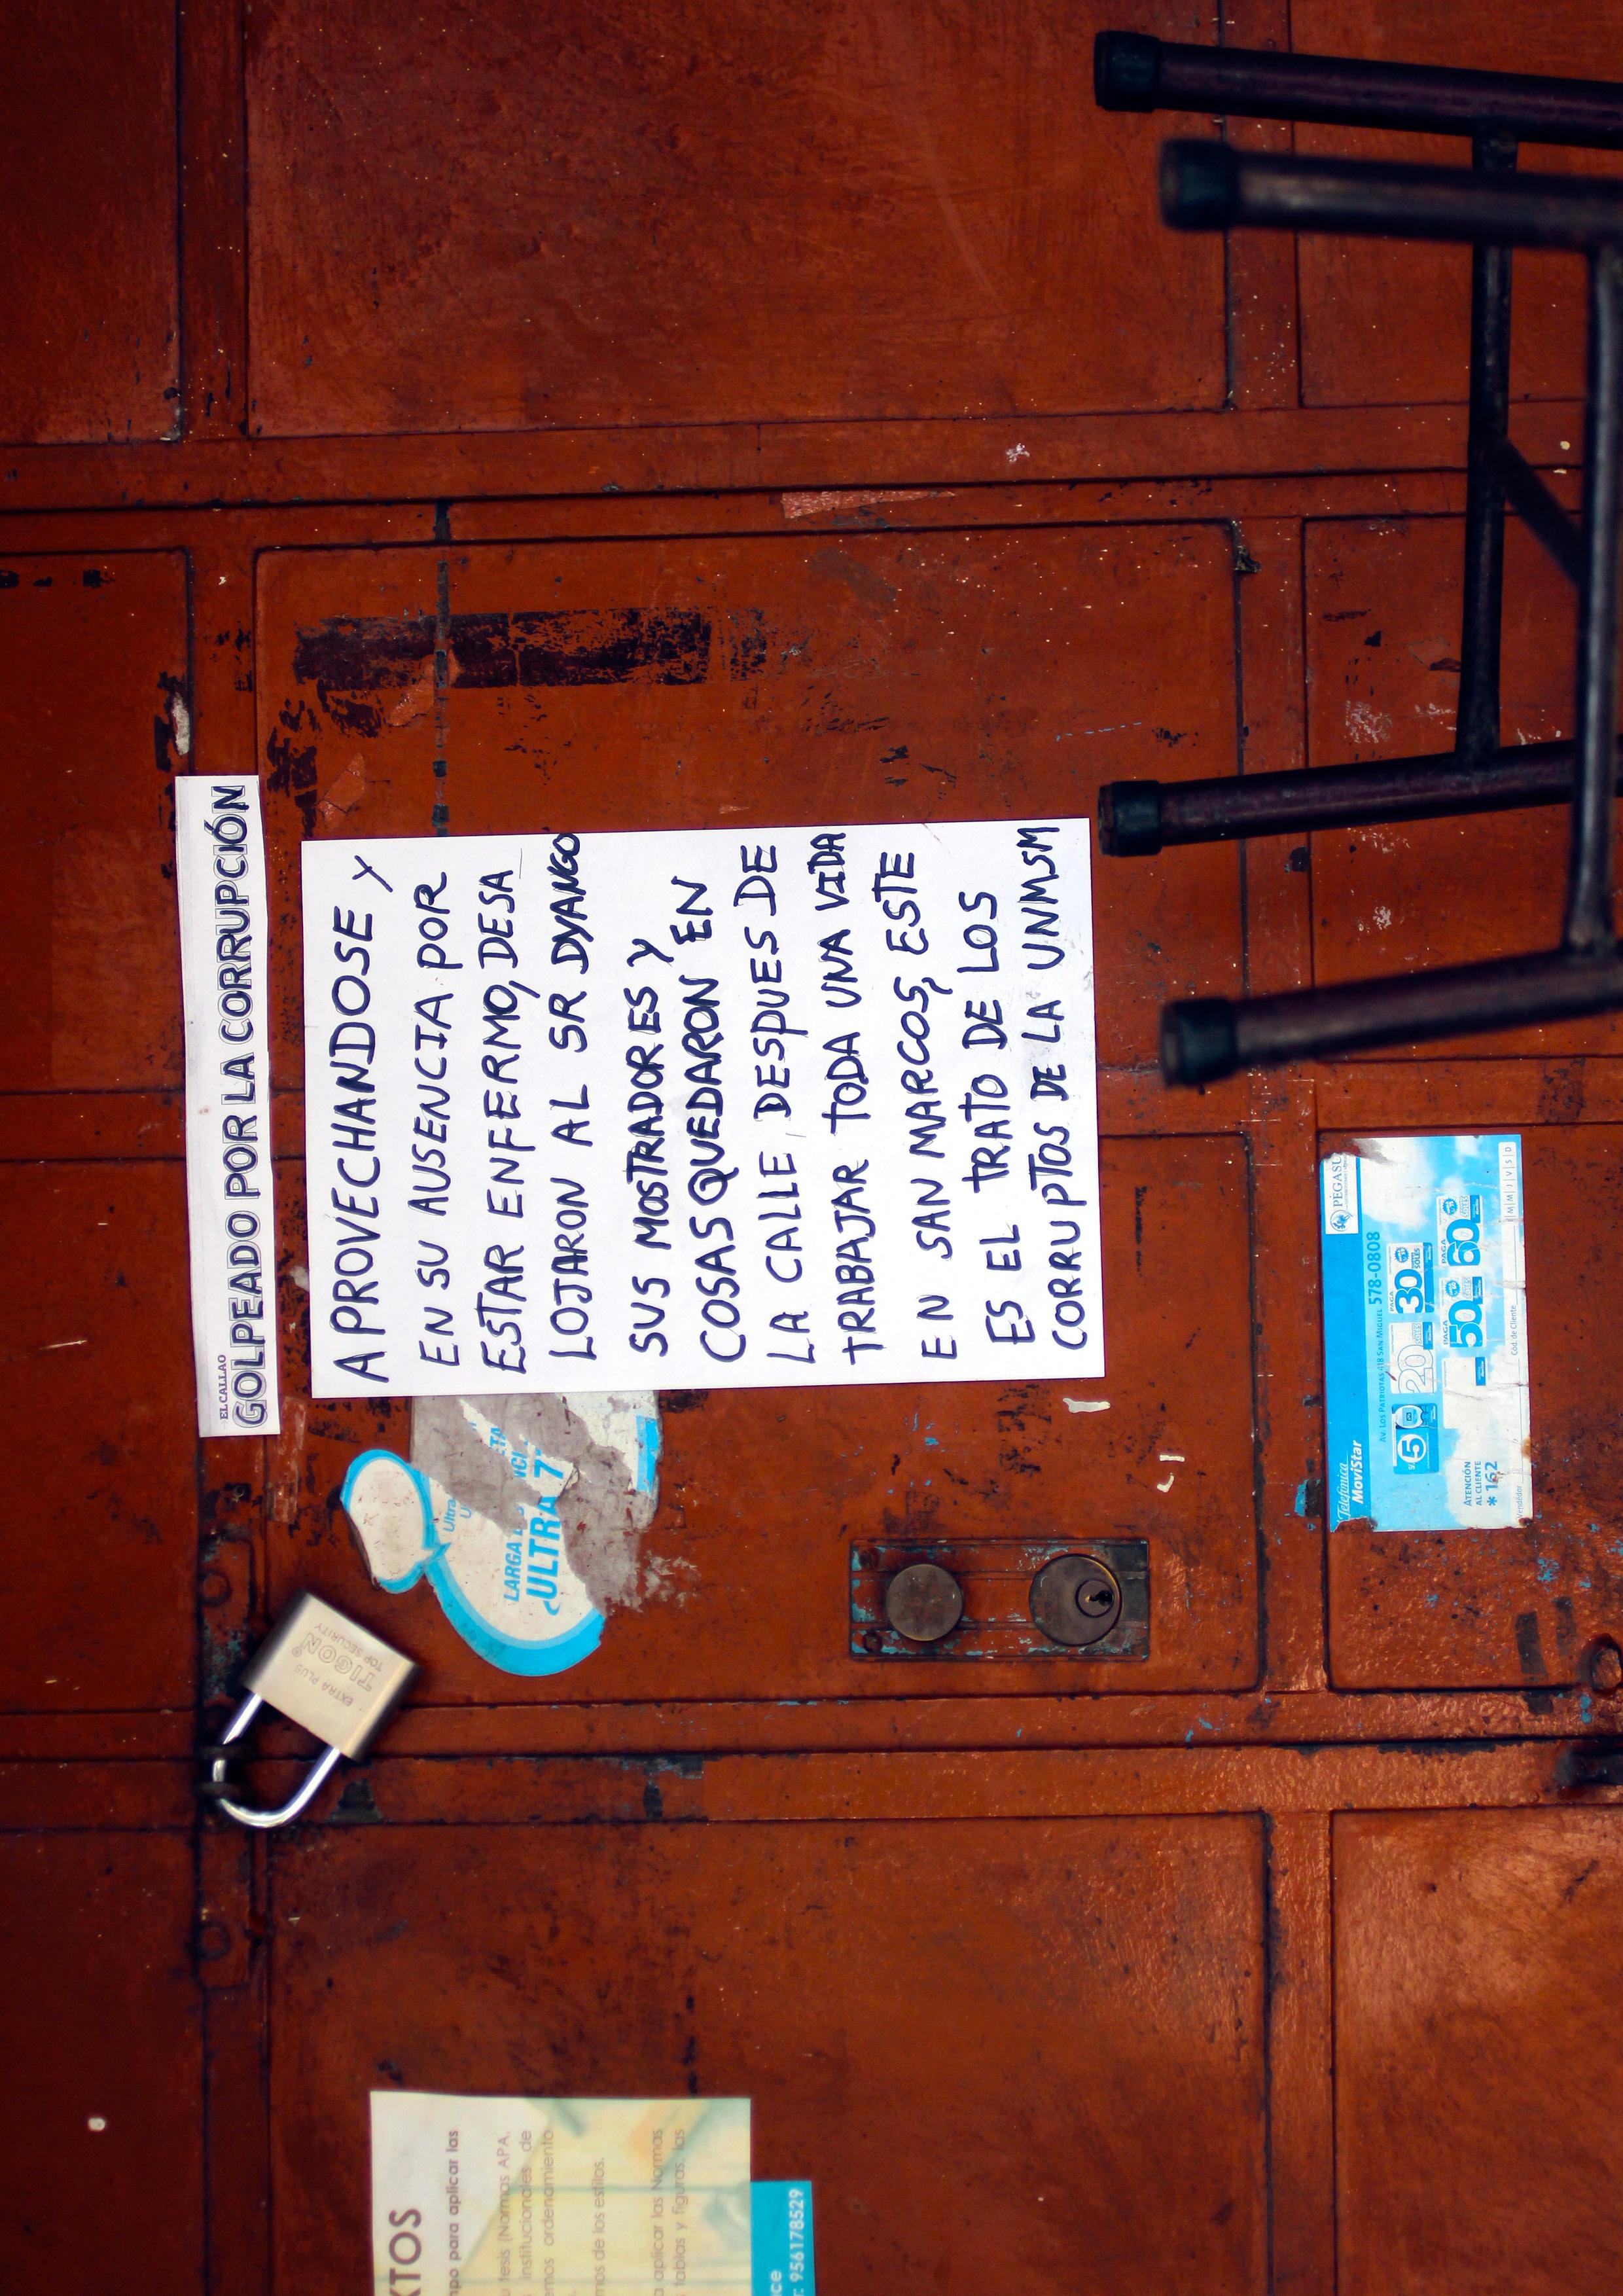 EL CALLAO
GOLPEADO POR LA CORRUPCIÓN
APROVECHANDOSE Y
EN SU AUSENCIA POR
ESTAR ENFERMO, DESA
LOJARON AL SR DYANGO
SUS MOSTRADORES Y
COSAS QUEDARON EN
LA CALLE DESPUES DE
TRABAJAR TODA UNA VIDA
EN SAN MARCOS, ESTE
ES EL TRATO DE LOS
CORRUPTOS DE LA UNMSM
LARGA
ULTRA 7
EXTRA PLUS
TIGON®
TOP SECURITY
Telefónica
MoviStar
PEGASU
Av. LOS PATRIOTAS 418 SAN MIGUEL 578-0808
5
20
PAGA 30
SOLES
PAGA 50
PAGA 60
ATENCIÓN
AL CLIENTE
* 162
Cód. de Cliente
M I V S D
XTOS
po para aplicar las
tesis (Normas APA,
institucionales de
mos ordenamiento
mos de los estilos.
aplicar las Normas
tablas y figuras, las
ce
: 956178529